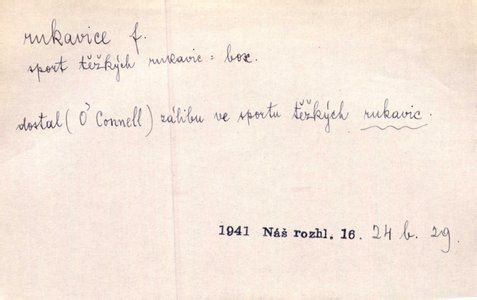 rukavice f.
sport těžkých rukavic = box.
dostal (O'Connell) zálibu ve sportu těžkých rukavic.
1941 Náš rozhl. 16. 24 b. 29.